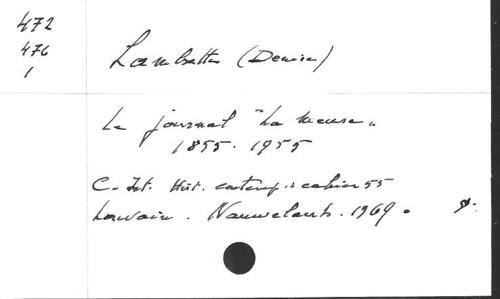 472
476
1
Lambrette (Denise)
Le journal "La Meuse"
1855-1955
C. Int. Hist. contemp. cahier 55
Louvain. Nauwelaerts. 1969.